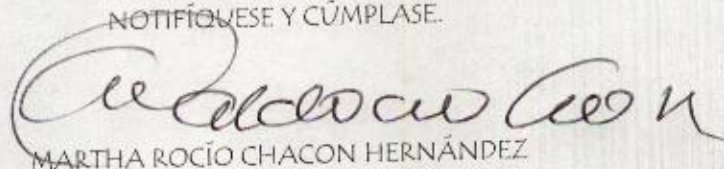 NOTIFÍQUESE Y CÚMPLASE.
MARTHA ROCÍO CHACON HERNÁNDEZ